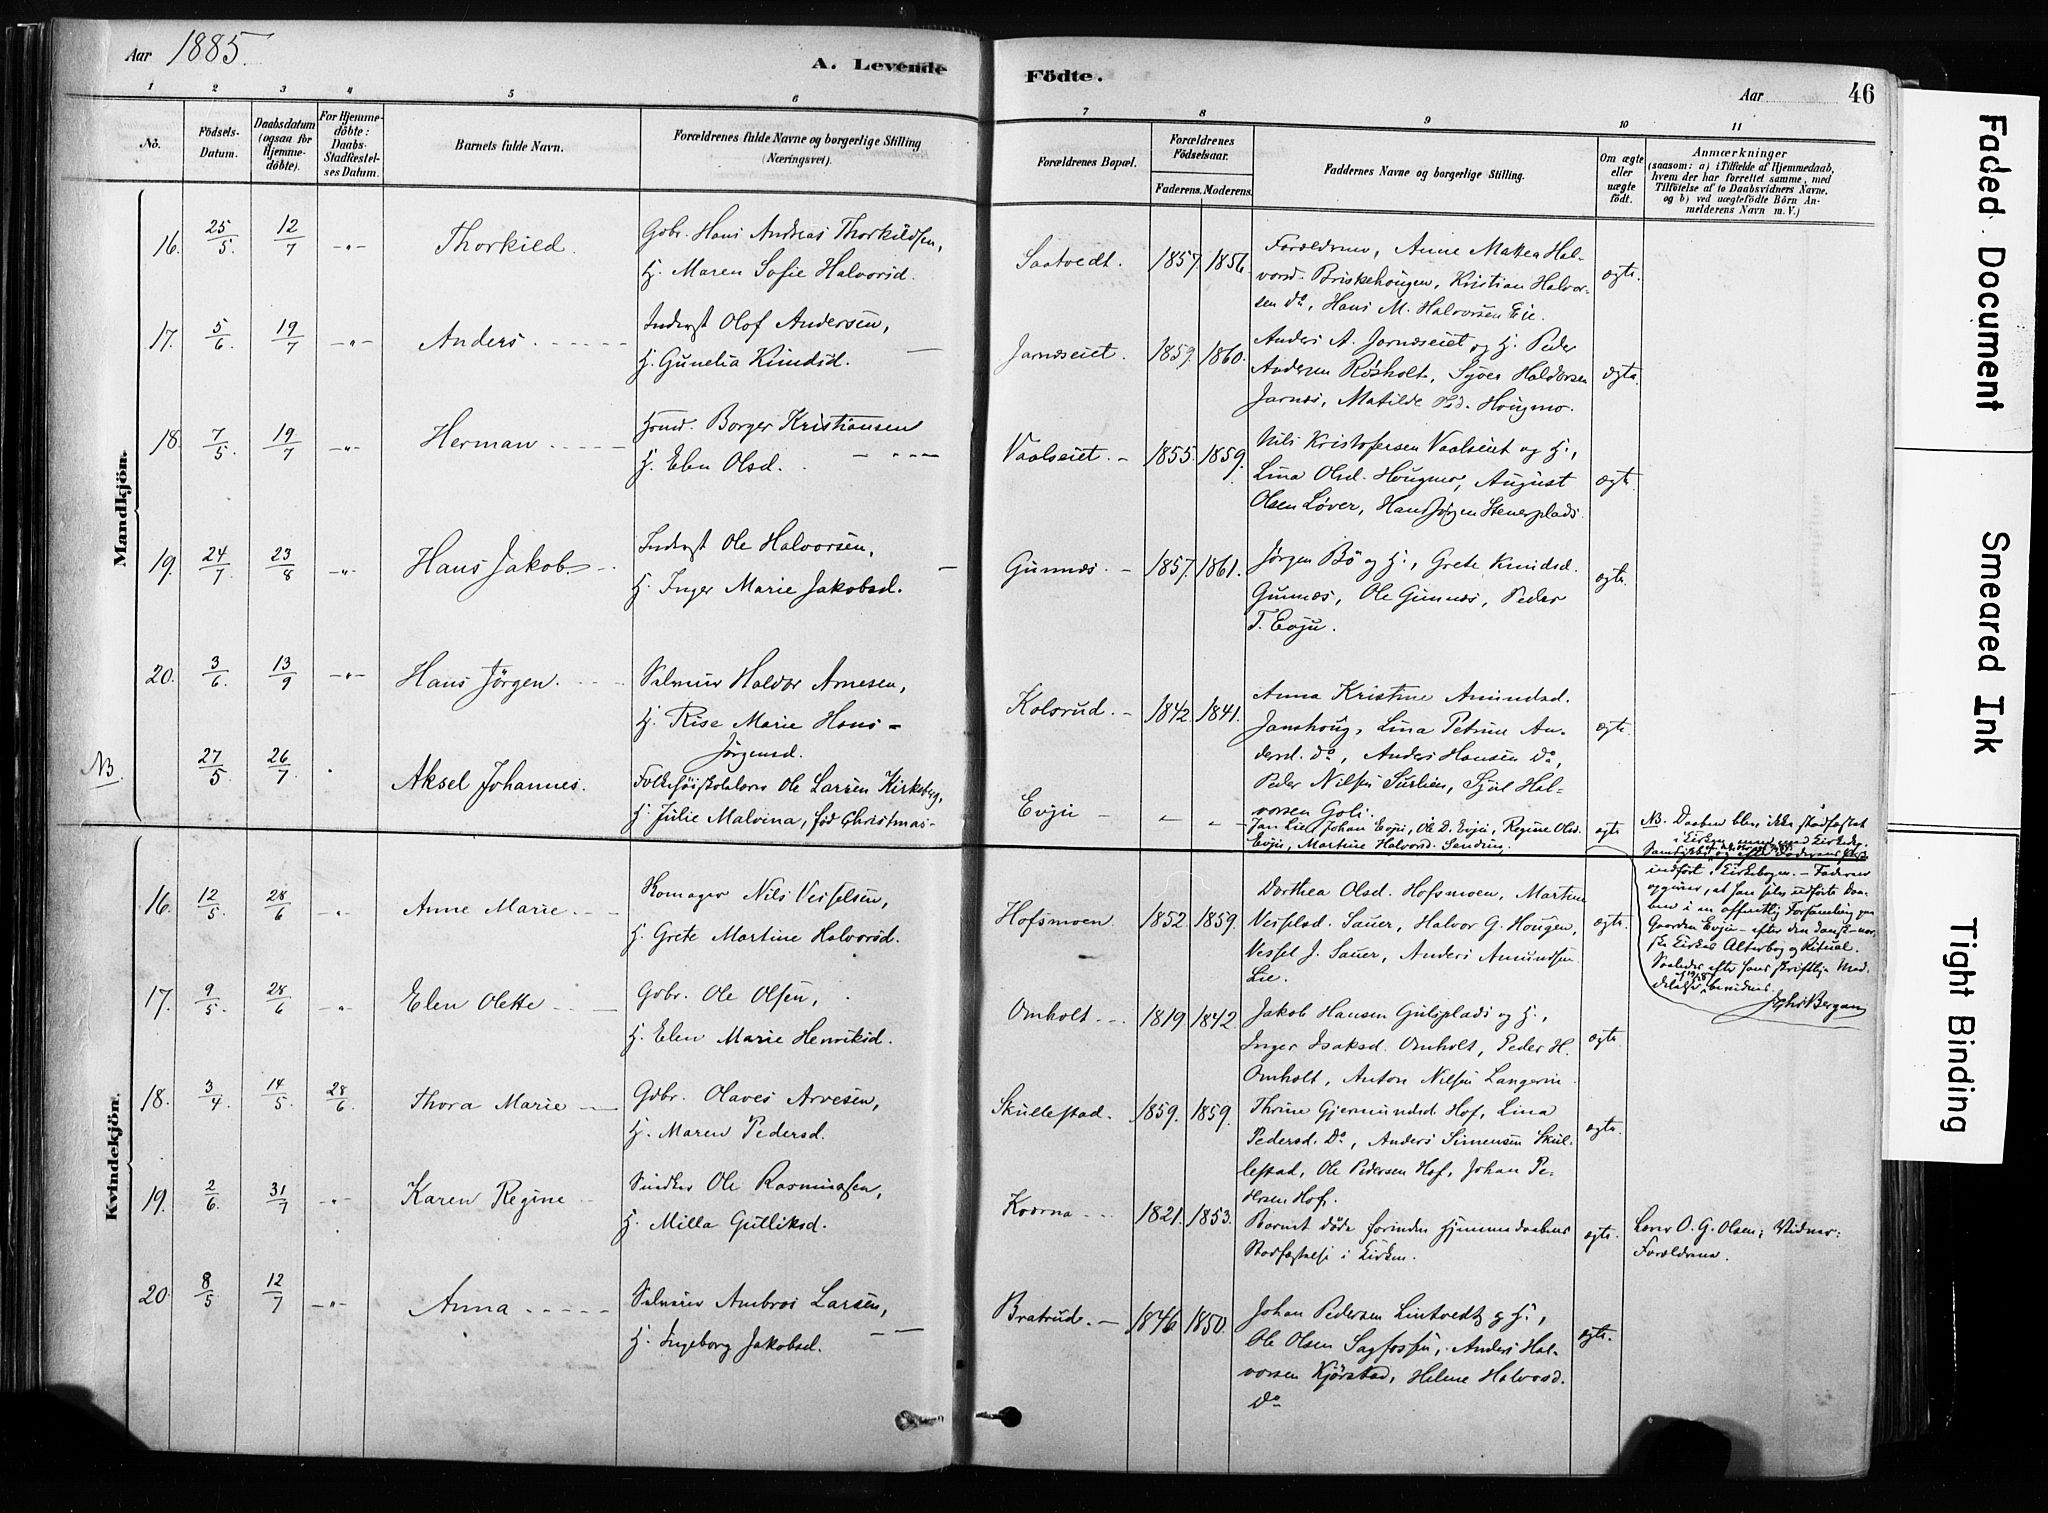 Aar 1885.
A. Levende
Födte.
Aar
46
1 2 3 4 5 6
7 8 9 10 11
No.
Födsels-
Datum.
Daabsdatum
(ogsaa for
Hjemme-
döbte).
For Hjemme-
döbte:
Daabs-
Stadfæstel-
ses Datum.
Barnets fulde Navn.
Forældrenes fulde Navne og borgerlige Stilling
(Næringsvei).
Forældrenes Bopæl.
Forældrenes
Födselsaar.
Faderens. Moderens.
Faddernes Navne og borgerlige Stilling.
Om ægte
eller
uægte
födt.
Anmærkninger
(saasom: a) i Tilfælde af Hjemmedaab,
hvem der har forrettet samme, med
Tilföielse af to Daabsvidners Navne,
og b) ved uægtefödte Börn An-
melderens Navn m. V.)
Mandkjön.
16. 25/5 12/7 -"- Thorkild.
Gbr. Hans Andreas Thorkildsen,
H. Maren Sofie Halvorsd.
Saatvedt. 1857. 1856.
Forældrene, Anne Mathea Hal-
vorsd. Briskehougen, Kristian Halvor-
sen Do, Hans M. Halvorsen Eie.
ægte.
17. 5/6 19/7 -"- Anders
Inderst Olof Andersen,
H. Gunelia Knudsd.
Jarnæseiet. 1859. 1860.
Anders A. Jarnæseiet og H. Peder
Andersen Røsholt, Syver Haldorsen
Jarnæs, Matilde Pd. Hougmo.
ægte.
18. 7/5 19/7 -"- Herman
Husmd. Borger Kristiansen
H. Elen Olsd.
Vaalseiet. 1855. 1859.
Nils Kristofersen Vaalseiet og H.,
Lina Olsd. Hougmo, August
Olsen Løver, Hans Jørgen Stenerplads.
ægte.
19. 24/7 23/8 -"- Hans Jakob.
Inderst Ole Halvorsen,
H. Inger Marie Jakobsd.
Gunnæs. 1857. 1861.
Jørgen Bö og H., Grete Knudsd.
Gunnæs, Ole Gunnæs, Peder
T. Evju.
ægte.
20. 3/6 13/9 -"- Hans Jörgen.
Selveier Haldor Arnesen,
H. Rise Marie Hans-
Jørgensd.
Kolsrud. 1842. 1841.
Anna Kristine Amundsd.
Janshoug, Lina Petrine An-
dersd. Do, Anders Hansen Do,
Peder Nilsen Surlien, Sjul Hal-
vorsen Goli.
ægte.
NB. 27/5 26/7 Aksel Johannes.
Folkehöiskolelærer Ole Larsen Kirkeberg,
H. Julie Malvina, fød Christmas-
Evju
Jan Lie, Johan Evju, Ole D. Evju, Regine Olsd.
Evju, Martine Halvorsd. Sanden.
ægte
NB. Daaben blev ikke stadfæstet
i Kirken,
indført i Kirkebogen. – Faderen
opgiver, at han selv udførte Daa-
ben i en offentlig Forsamling paa
Gaarden Evju – efter den dansk-nor-
ske Kirkes Alterbog og Ritual.
Saaledes efter hans skriftlige Med-
delelse bevidnes.
Bergan
Kvindekjön.
16. 12/5 28/6 -"- Anne Marie
Komager Nils Vesselsen,
H. Grete Martine Halvorsd.
Hofsmoen. 1852. 1859.
Dorthea Olsd. Hofsmoen, Marten
Vesselsd. Sauer, Halvor G. Hougen,
Vessel J. Sauer, Anders Amundsen
Lie.
ægte.
17. 9/5 28/6 -"- Elen Olette
Gbr. Ole Olsen,
H. Elen Marie Henriksd.
Omholt. 1819 1842.
Jakob Hansen Gulsplads og H.,
Inger Isaksd. Omholt, Peder H.
Omholt, Anton Nilsen Langerin.
ægte.
18. 3/4 14/5 28/6 Thora Marie
Gbr. Olaves Arvesen,
H. Maren Pedersd.
Skullestad. 1859. 1859.
Thrine Gjermundsd. Hof, Lina
Pedersd. Do, Anders Simensen Skul-
lestad, Ole Pedersen Hof, Johan Pe-
dersen Hof.
ægte.
19. 2/6 31/7 -"- Karen Regine
Snedker Ole Rasmussen,
H. Milla Gulliksd.
Kværna 1821. 1853.
Barnet døde forinden Hjemmedaabens
Stadfæstelse i Kirken.
ægte.
Lærer O. G. Olsen; Vidner:
Forældrene.
20. 8/5 12/7 -"- Anna
Selveier Ambros Larsen,
H. Ingeborg Jakobsd.
Bratrud. 1846. 1850.
Johan Pedersen Lintvedt og H.,
Ole Olsen Sagfossen, Anders Hal-
vorsen Kjørstad, Helene Halvorsd.
Do
ægte.
Faded Document
Smeared Ink
Tight Binding